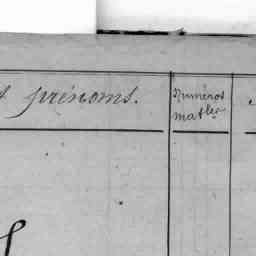 prénoms.
Numéros
matles